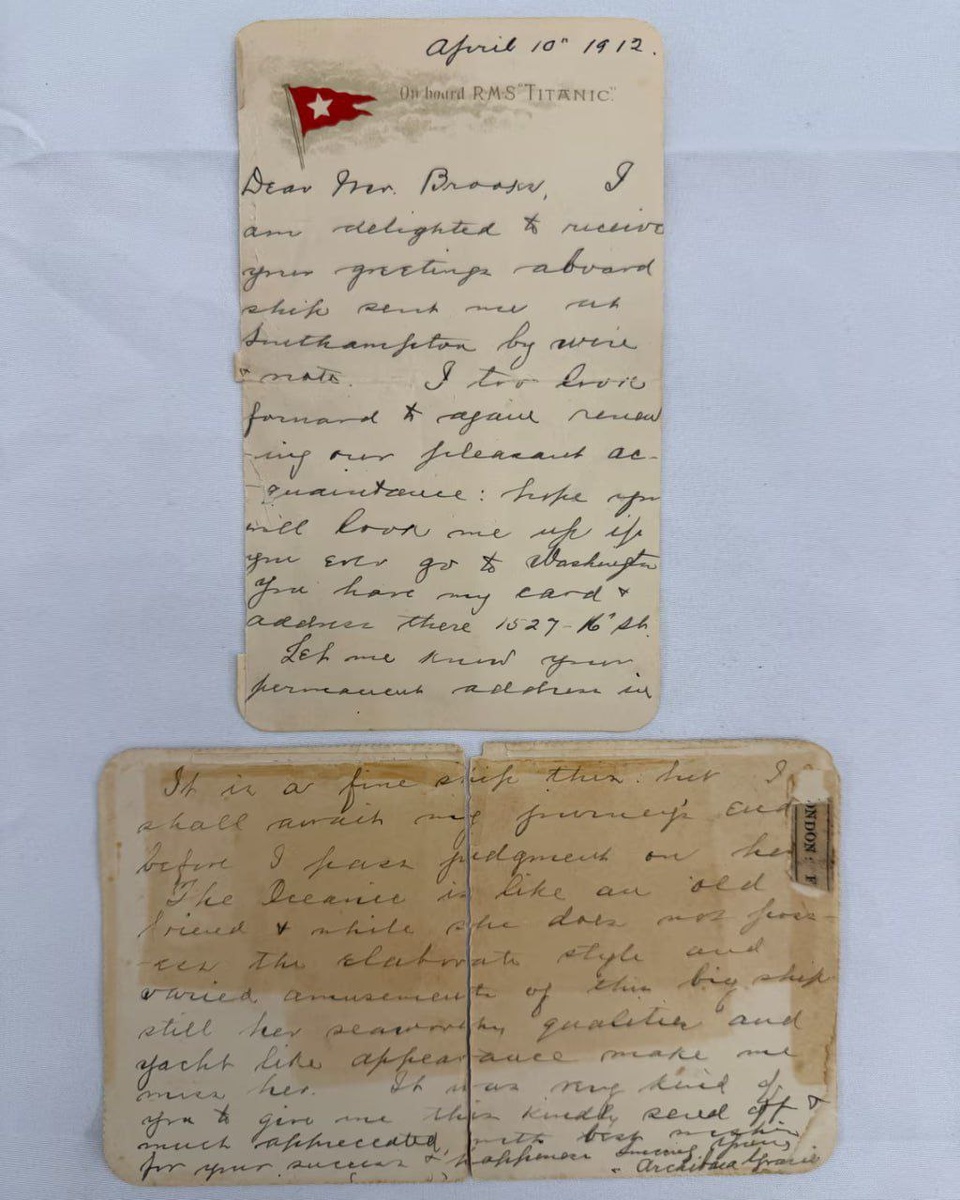 April 10" 1912.
On board RMS "TITANIC".
Dear Mr. Brooks, I
am delighted to receive
your greetings aboard
ship sent me at
Southampton by wire
& note. I too look
forward to again renew
-ing our pleasant ac-
quaintance: hope you
will look me up if
you ever go to Washington
You have my card &
address there 1527-16" St.
Let me know your
permanent address in
It is a fine ship this. but I
shall await my journey's end
before I pass judgment on her
The Oceanic is like an old
friend & while she does not poss-
-ess the elaborate style and
varied amusements of this big ship
still her seaworthy qualities and
yacht like appearance make me
miss her. It was very kind of
you to give me this kindly send off &
much appreciated, with best wishes
for your success & happiness Sincerely yours
Archibald Gracie
ONDON : F